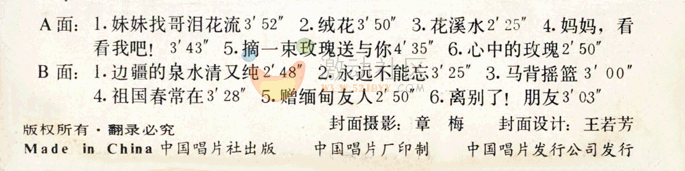 A面：1.妹妹找哥泪花流3′52″ 2.绒花3′50″ 3.花溪水2′25″ 4.妈妈，看
看我吧！ 3′43″ 5.摘一束玫瑰送与你4′35″ 6.心中的玫瑰2′50″
B面：1.边疆的泉水清又纯2′48″ 2.永远不能忘3′25″ 3.马背摇篮3′00″
4.祖国春常在3′28″ 5.赠缅甸友人2′50″ 6.离别了！朋友3′03″
版权所有·翻录必究 封面摄影：章 梅 封面设计：王若芳
Made in China 中国唱片社出版 中国唱片厂印制 中国唱片发行公司发行